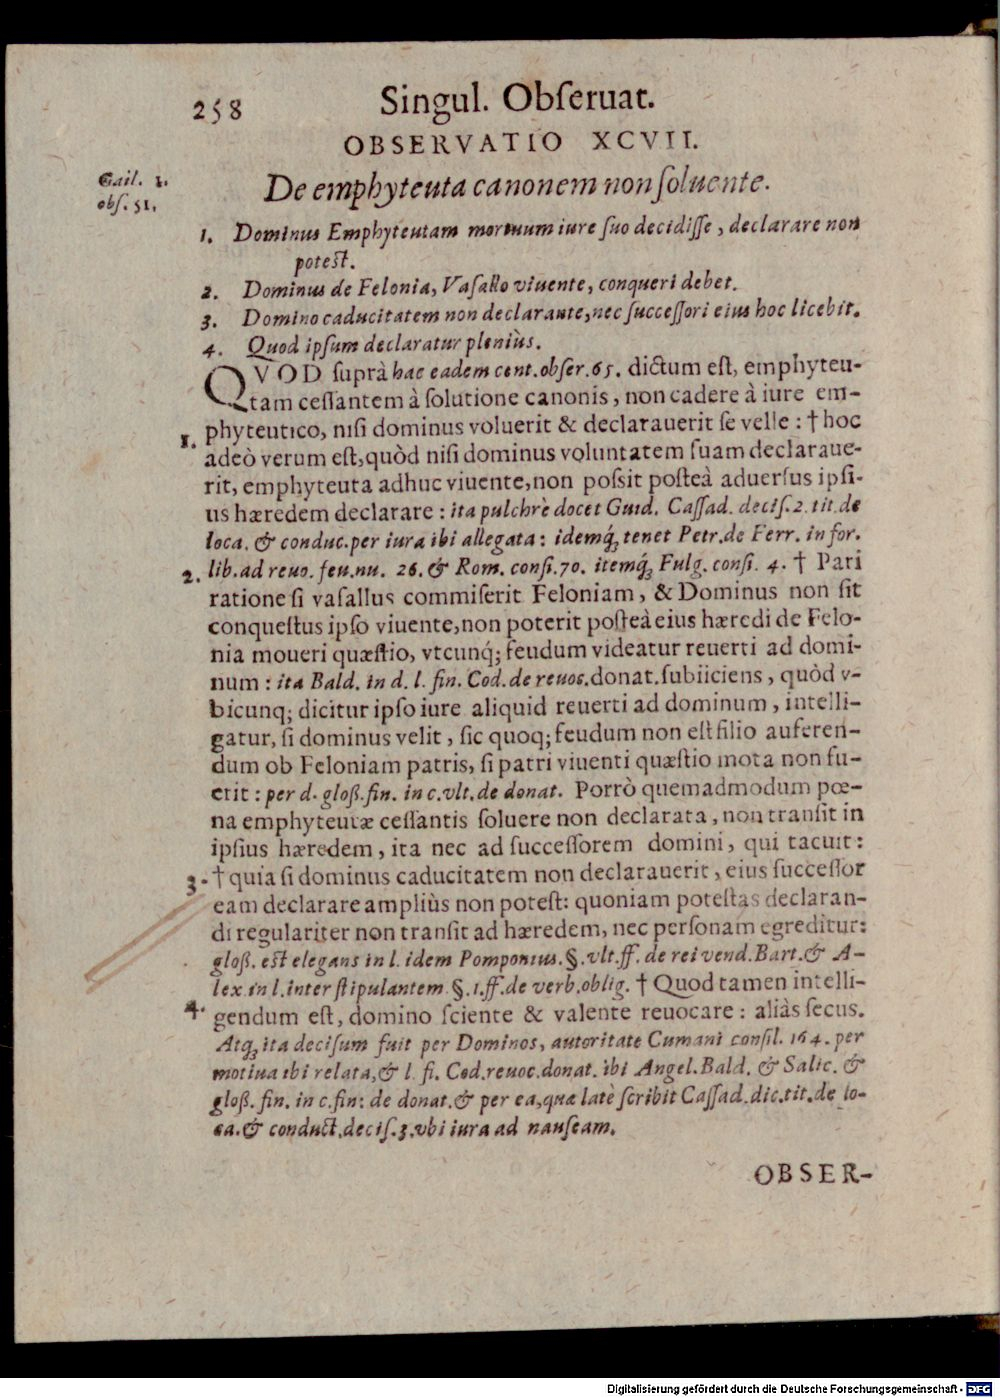 258 Singul. Obſeruat.
OBSERVATIO XCVII.
Gail. 1.
obſ. 51.
De emphyteuta canonem non ſoluente.
1. Dominus Emphyteutam mortuum iure ſuo decidiſſe, declarare non
poteſt.
2. Dominus de Felonia, Vaſallo viuente, conqueri debet.
3. Domino caducitatem non declarante, nec ſucceſſori eius hoc licebit.
4. Quod ipſum declaratur pleniùs.
QVOD ſuprà hac eadem cent. obſer. 65. dictum eſt, emphyteu-
tam ceſſantem à ſolutione canonis, non cadere à iure em-
phyteutico, niſi dominus voluerit & declarauerit ſe velle: † hoc
1. adeò verum eſt, quòd niſi dominus voluntatem ſuam declaraue-
rit, emphyteuta adhuc viuente, non poſsit poſteà aduerſus ipſi-
us hæredem declarare: ita pulchrè docet Guid. Caſſad. deciſ. 2. tit. de
loca. & conduc. per iura ibi allegata: idemq́ꝫ tenet Petr. de Ferr. in for.
2. lib. ad reuo. feu. nu. 26. & Rom. conſi. 70. itemq́ꝫ Fulg. conſi. 4. † Pari
ratione ſi vaſallus commiſerit Feloniam, & Dominus non ſit
conqueſtus ipſo viuente, non poterit poſteà eius hæredi de Felo-
nia moueri quæſtio, vtcunq́; feudum videatur reuerti ad domi-
num: ita Bald. in d. l. fin. Cod. de reuoc. donat. ſubiiciens, quòd v-
bicunq; dicitur ipſo iure aliquid reuerti ad dominum, intelli-
gatur, ſi dominus velit, ſic quoq; feudum non eſt filio auferen-
dum ob Feloniam patris, ſi patri viuenti quæſtio mota non fu-
erit: per d. gloß. fin. in c. vlt. de donat. Porrò quemadmodum pœ-
na emphyteutæ ceſſantis ſoluere non declarata, non tranſit in
ipſius hæredem, ita nec ad ſucceſſorem domini, qui tacuit:
3. † quia ſi dominus caducitatem non declarauerit, eius ſucceſſor
eam declarare ampliùs non poteſt: quoniam poteſtas declaran-
di regulariter non tranſit ad hæredem, nec perſonam egreditur:
gloß. eſt elegans in l. idem Pomponius. §. vlt. ff. de rei vend. Bart. & A-
lex. in l. inter ſtipulantem §. 1. ff. de verb. oblig. † Quod tamen intelli-
4. gendum eſt, domino ſciente & valente reuocare: aliàs ſecus.
Atqꝫ ita deciſum fuit per Dominos, autoritate Cumani conſil. 164. per
motiua ibi relata, & l. fi. Cod. reuoc. donat. ibi Angel. Bald. & Salic. &
gloß. fin. in c. fin: de donat. & per ea, quæ latè ſcribit Caſſad. dic. tit. de lo-
ca. & conduct. deciſ. 3. vbi iura ad nauſeam.
OBSER-
Digitalisierung gefördert durch die Deutsche Forschungsgemeinschaft - DFG